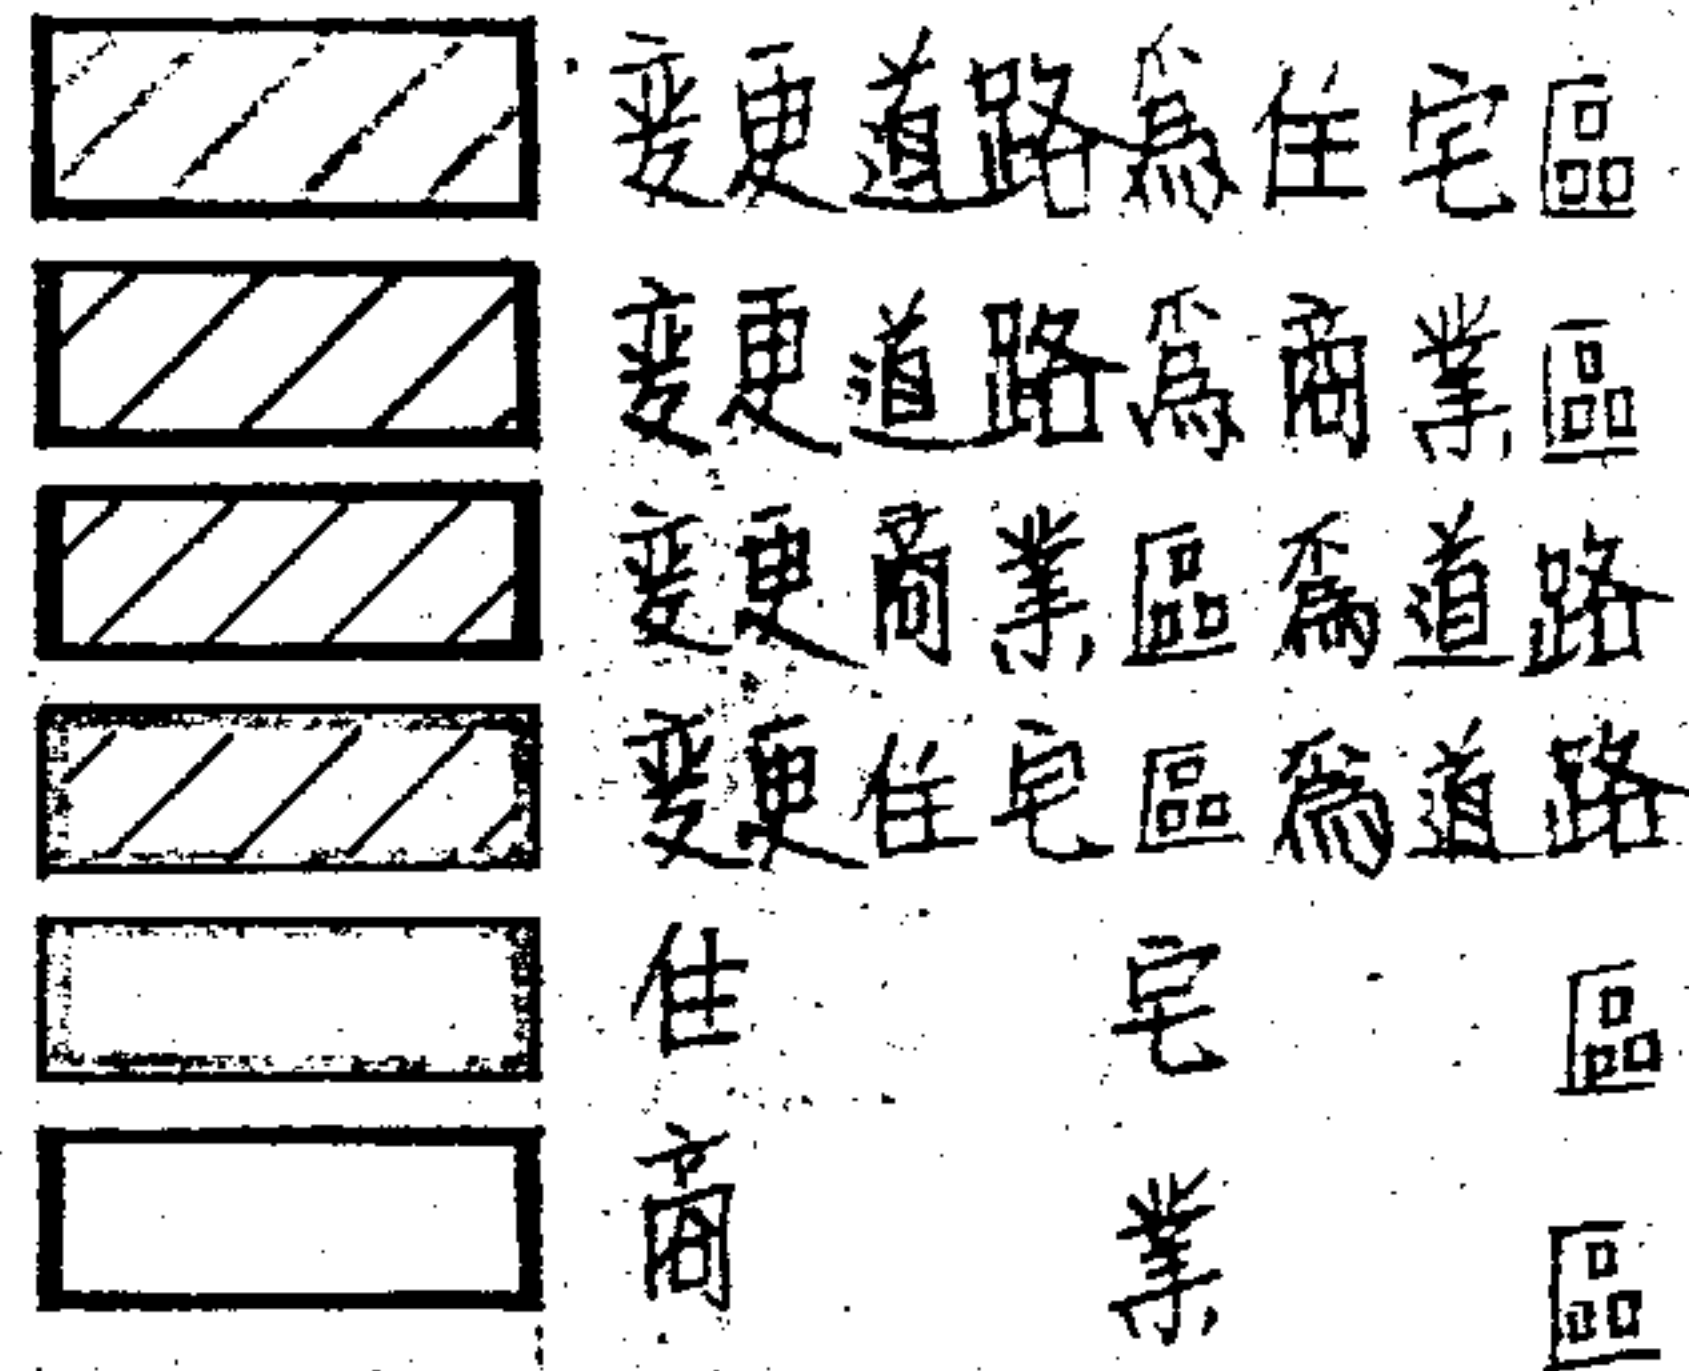 変更道路為住宅區
変更道路為商業區
変更商業區為道路
変更住宅區為道路
住宅區
商業區